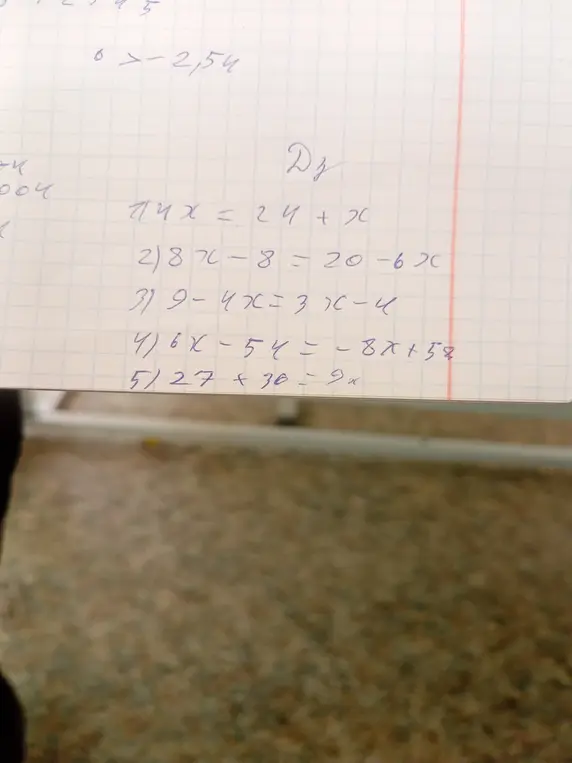 6 > -2,54
Дз
1) 4x = 24 + x
2) 8x - 8 = 20 - 6x
3) 9 - 4x = 3x - 4
4) 6x - 54 = -8x + 58
5) 27 + 30 = 9x